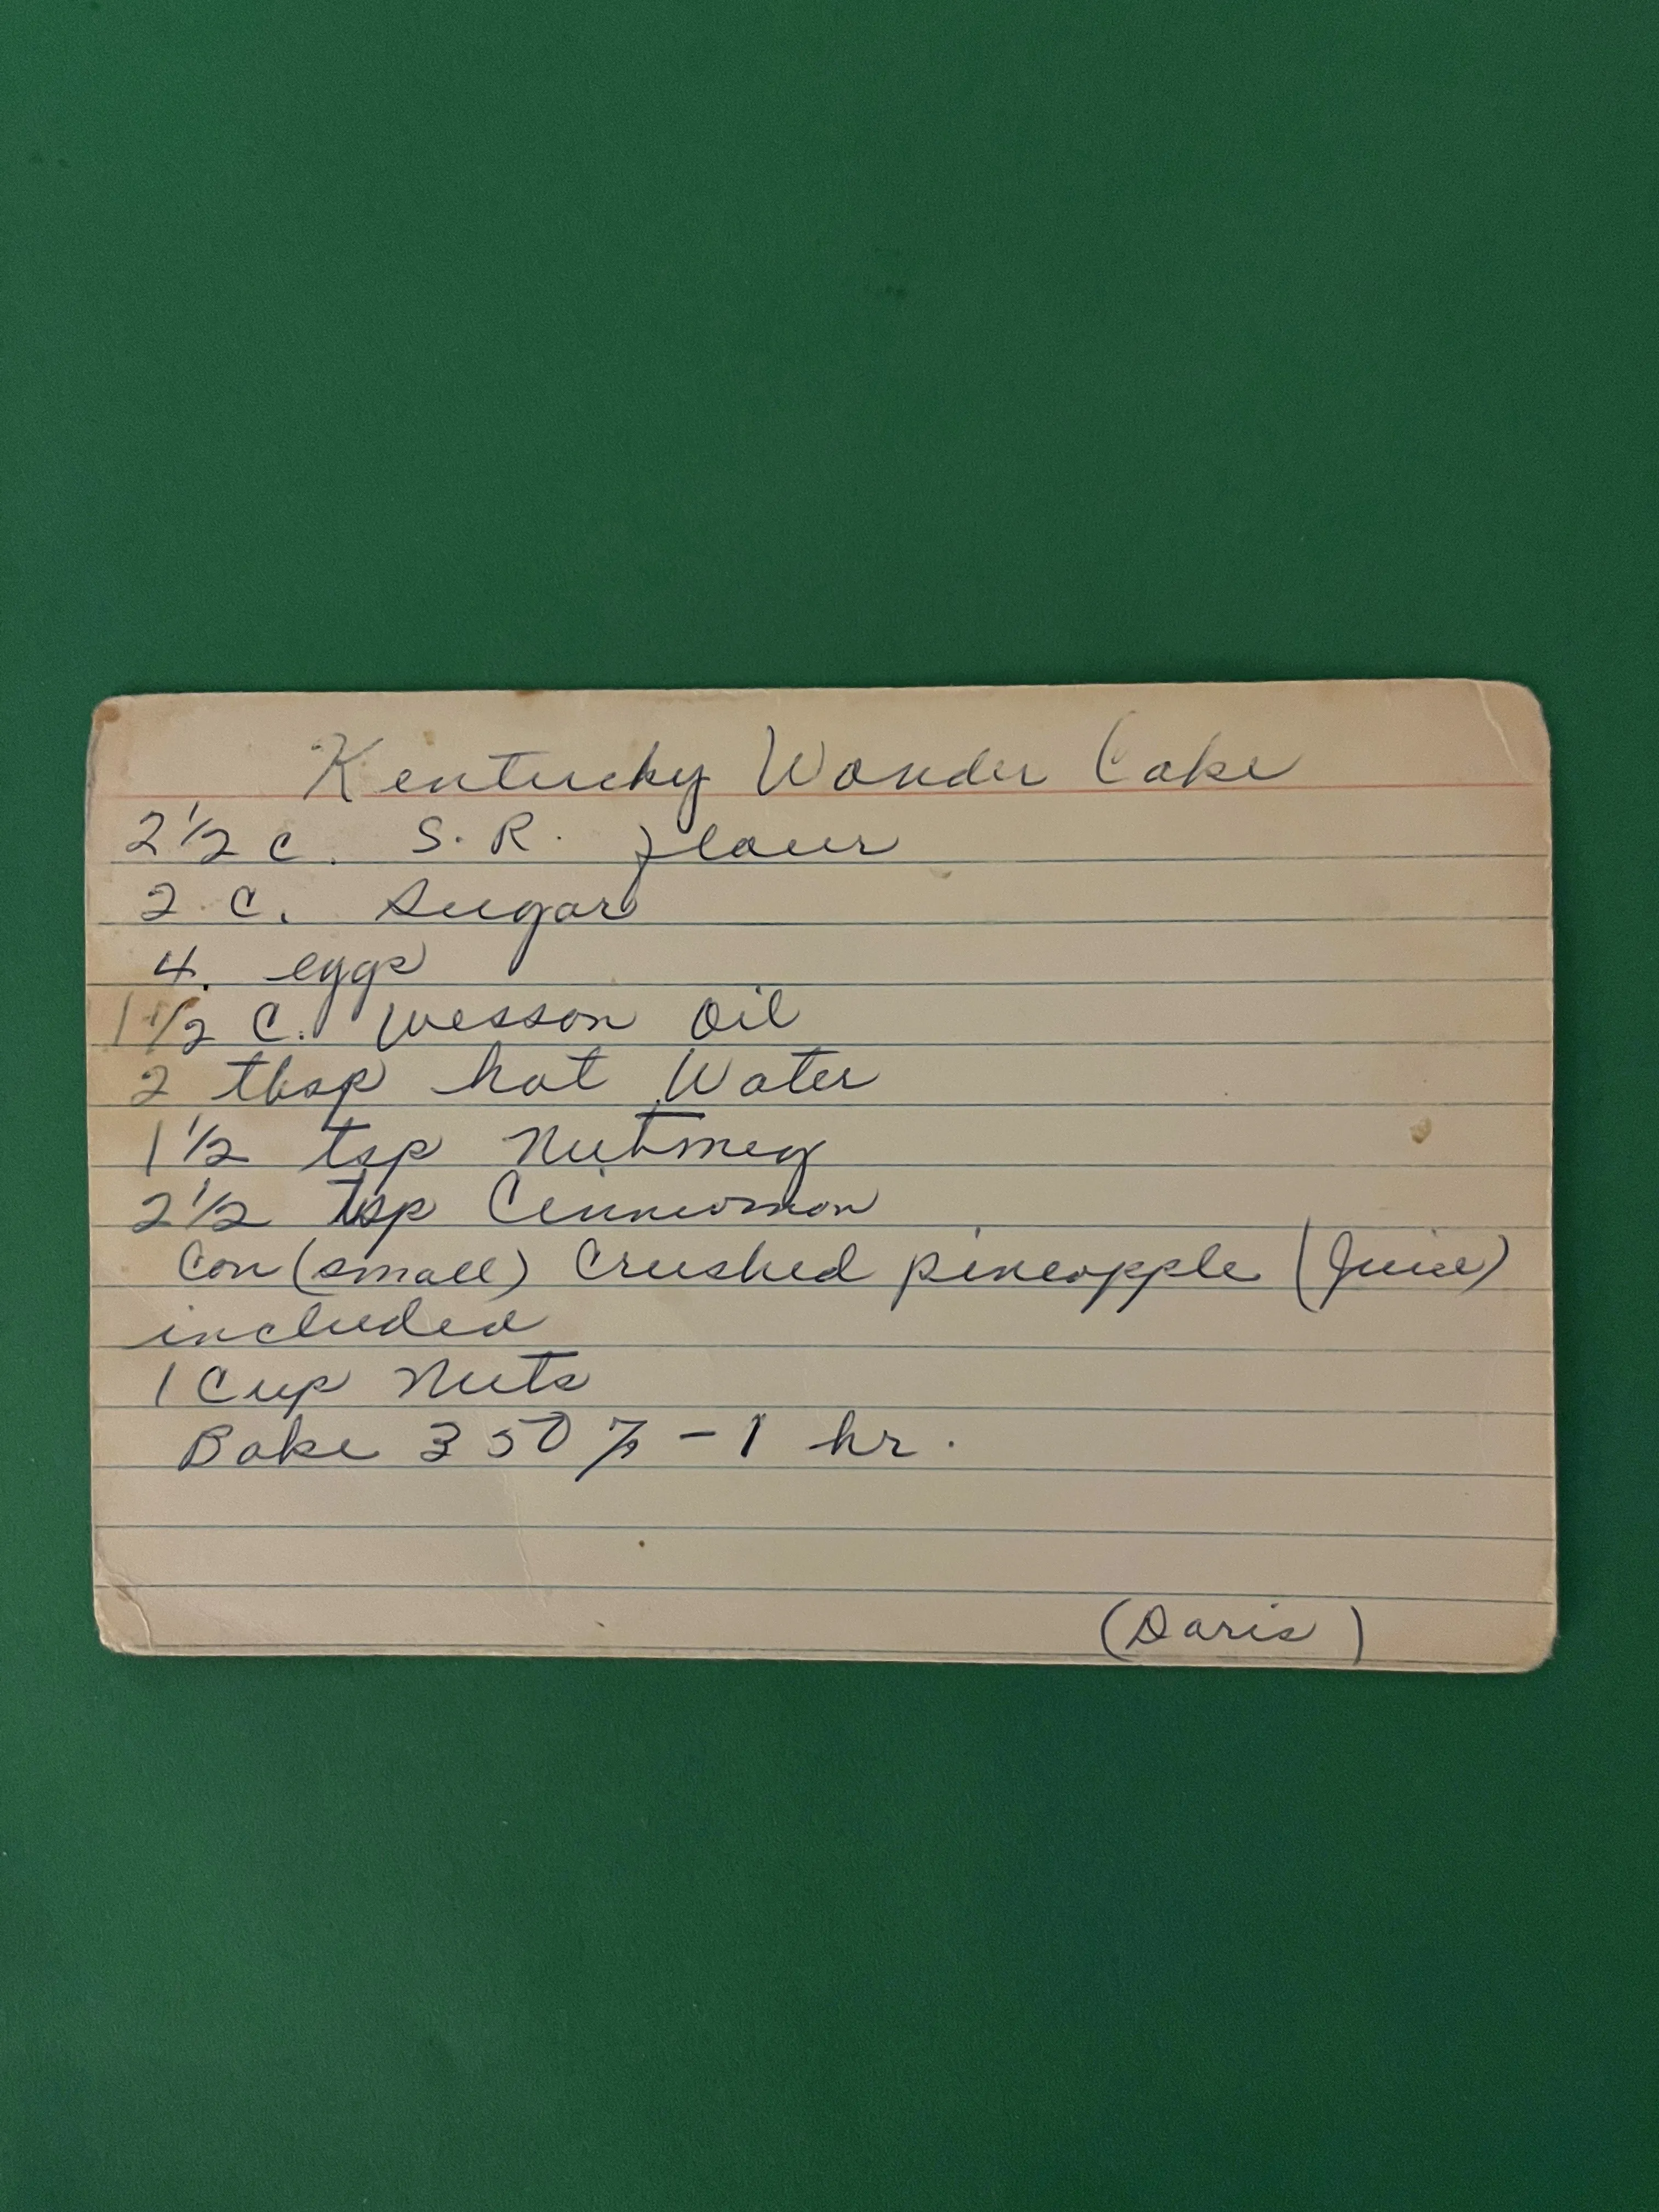 Kentucky Wonder Cake
2 1/2 c. S.R. flour
2 c. Sugar
4. eggs
1 1/2 C. Wesson Oil
2 tbsp hot Water
1 1/2 tsp Nutmeg
2 1/2 tsp Cinnamon
Can (small) Crushed pineapple (Juice)
included
1 Cup Nuts
Bake 350 % - 1 hr.
(Doris)